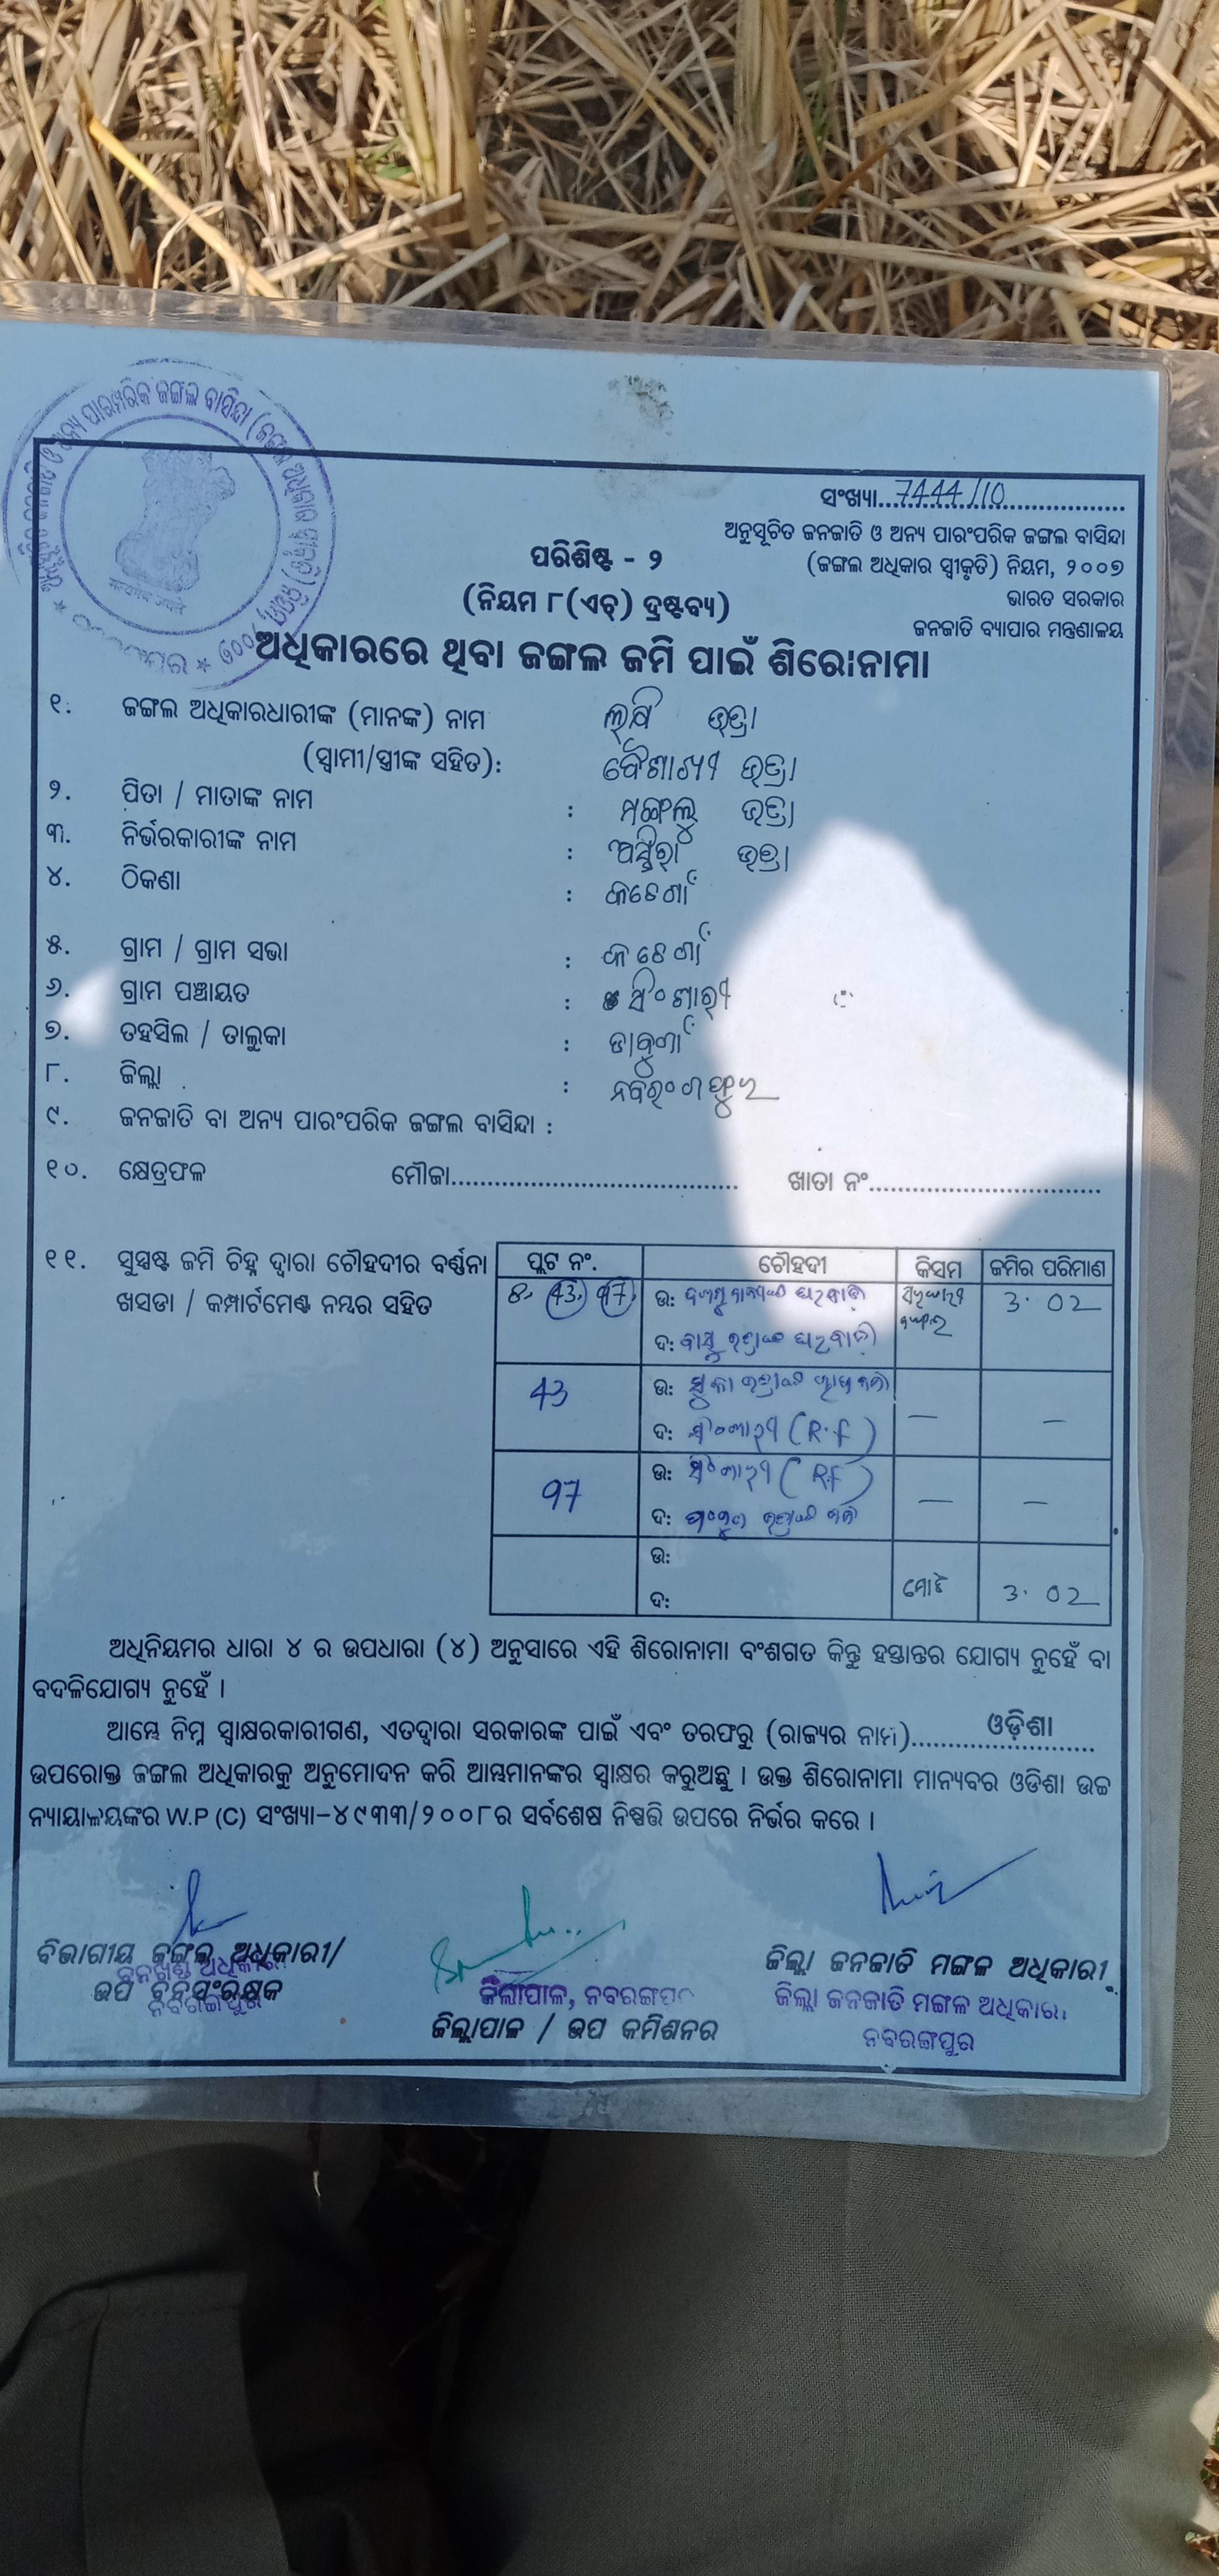 ସଂଖ୍ୟା...7444/10...
ଅନୁସୂଚିତ ଜନଜାତି ଓ ଅନ୍ୟ ପାରଂପରିକ ଜଙ୍ଗଲ ବାସିନ୍ଦା
(ଜଙ୍ଗଲ ଅଧିକାର ସ୍ୱୀକୃତି) ନିୟମ, ୨୦୦୭
ଭାରତ ସରକାର
ଜନଜାତି ବ୍ୟାପାର ମନ୍ତ୍ରଣାଳୟ
ପରିଶିଷ୍ଟ - ୨
(ନିୟମ ୮(ଏଚ୍) ଦ୍ରଷ୍ଟବ୍ୟ)
ଅଧିକାରରେ ଥିବା ଜଙ୍ଗଲ ଜମି ପାଇଁ ଶିରୋନାମା
୧. ଜଙ୍ଗଲ ଅଧିକାରଧାରୀଙ୍କ (ମାନଙ୍କ) ନାମ ଭତ୍ରା
(ସ୍ୱାମୀ/ସ୍ତ୍ରୀଙ୍କ ସହିତ): ବୈଶାଖୀ ଭତ୍ରା
୨. ପିତା / ମାତାଙ୍କ ନାମ : ମଙ୍ଗଳୁ ଭତ୍ରା
୩. ନିର୍ଭରକାରୀଙ୍କ ନାମ : ଭତ୍ରା
୪. ଠିକଣା :
୫. ଗ୍ରାମ / ଗ୍ରାମ ସଭା :
୬. ଗ୍ରାମ ପଞ୍ଚାୟତ :
୭. ତହସିଲ / ତାଲୁକା : ଡାବୁଗାଁ
୮. ଜିଲ୍ଲା : ନବରଂଗପୁର
୯. ଜନଜାତି ବା ଅନ୍ୟ ପାରଂପରିକ ଜଙ୍ଗଲ ବାସିନ୍ଦା :
୧୦. କ୍ଷେତ୍ରଫଳ ମୌଜା........ ଖାତା ନଂ........
୧୧. ସୁସ୍ପଷ୍ଟ ଜମି ଚିହ୍ନ ଦ୍ୱାରା ଚୌହଦୀର ବର୍ଣ୍ଣନା
ଖସଡା / କମ୍ପାର୍ଟମେଣ୍ଟ ନମ୍ବର ସହିତ
ପ୍ଲଟ ନଂ. ଚୌହଦୀ କିସମ ଜମିର ପରିମାଣ
8, 43, 97, ଉ: 3.02
ଦ:
43 ଉ: — —
ଦ: (R.F)
97 ଉ: (R.F) — —
ଦ:
ଉ:
ଦ: ମୋଟ 3.02
ଅଧିନିୟମର ଧାରା ୪ ର ଉପଧାରା (୪) ଅନୁସାରେ ଏହି ଶିରୋନାମା ବଂଶଗତ କିନ୍ତୁ ହସ୍ତାନ୍ତର ଯୋଗ୍ୟ ନୁହେଁ ବା
ବଦଳିଯୋଗ୍ୟ ନୁହେଁ ।
ଆମ୍ଭେ ନିମ୍ନ ସ୍ୱାକ୍ଷରକାରୀଗଣ, ଏତଦ୍ୱାରା ସରକାରଙ୍କ ପାଇଁ ଏବଂ ତରଫରୁ (ରାଜ୍ୟର ନାମ)...ଓଡ଼ିଶା...
ଉପରୋକ୍ତ ଜଙ୍ଗଲ ଅଧିକାରକୁ ଅନୁମୋଦନ କରି ଆମ୍ଭମାନଙ୍କର ସ୍ୱାକ୍ଷର କରୁଅଛୁ । ଉକ୍ତ ଶିରୋନାମା ମାନ୍ୟବର ଓଡିଶା ଉଚ୍ଚ
ନ୍ୟାୟାଳୟଙ୍କର W.P (C) ସଂଖ୍ୟା-୪୯୩୩/୨୦୦୮ର ସର୍ବଶେଷ ନିଷ୍ପତ୍ତି ଉପରେ ନିର୍ଭର କରେ ।
ବିଭାଗୀୟ ଜଙ୍ଗଲ ଅଧିକାରୀ/
ଉପ ବନସଂରକ୍ଷକ
ବନଖଣ୍ଡ ଅଧିକାରୀ
ନବରଙ୍ଗପୁର
ଜିଲ୍ଲାପାଳ, ନବରଙ୍ଗପୁର
ଜିଲ୍ଲାପାଳ / ଉପ କମିଶନର
ଜିଲ୍ଲା ଜନଜାତି ମଙ୍ଗଳ ଅଧିକାରୀ
ଜିଲ୍ଲା ଜନଜାତି ମଙ୍ଗଳ ଅଧିକାରୀ
ନବରଙ୍ଗପୁର